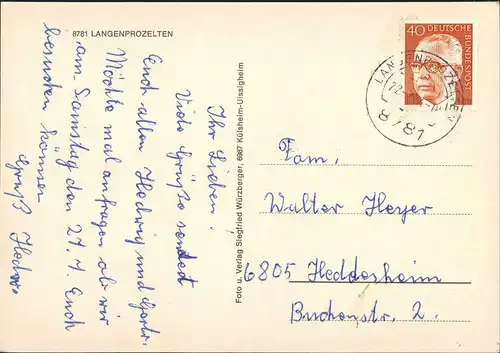 8781 LANGENPROZELTEN
Ihr Lieben!
Viele Grüße sendet
Euch allen Hedwig und
Möchte mal anfragen ob wir
am Samstag den 27. 1. Euch
besuchen können
Gruß Hedw.
Foto u. Verlag Siegfried Würzberger, 6987 Külsheim-Uissigheim
40 DEUTSCHE
BUNDESPOST
LANGENPROZELTEN
8781
Fam.
Walter Heyer
6805 Heddesheim
Buchenstr. 2.